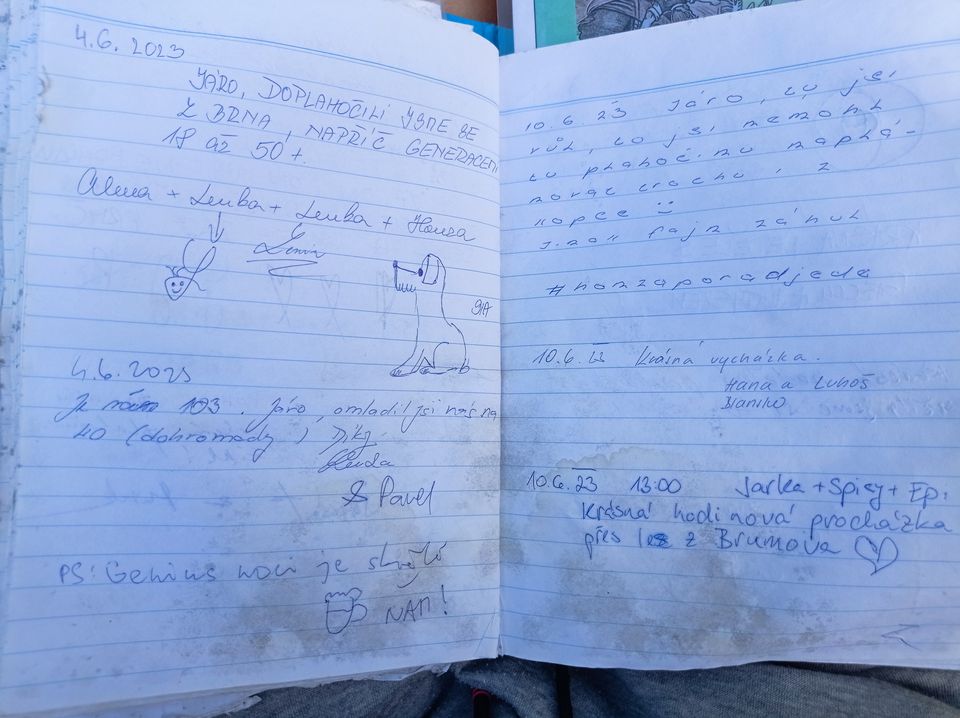 4.6. 2023
JÁRO, DOPLAHOČILI JSME SE
Z BRNA, NAPŘÍČ GENERACEMI
18 AŽ 50+.
Alena + Lenka + Lenka + Honza
GIA
4.6. 2023
Je nám 103. Járo, omladil jsi nás na
40 (dohromady) Díky.
& Pavel
PS: Genius loci je skvělé
ŇAM!
10.6 23 Járo, ty jsi
vůl, to jsi nemohl
tu plahočinu naplá-
novat trochu z
kopce
jinak fajn záhul
#honzaporadjede
10.6. 23 Krásná vycházka.
Hana a Luboš
10.6. 23 13:00 Jarka + Spicy + Ep:
Krásná hodinová procházka
přes les z Brumova